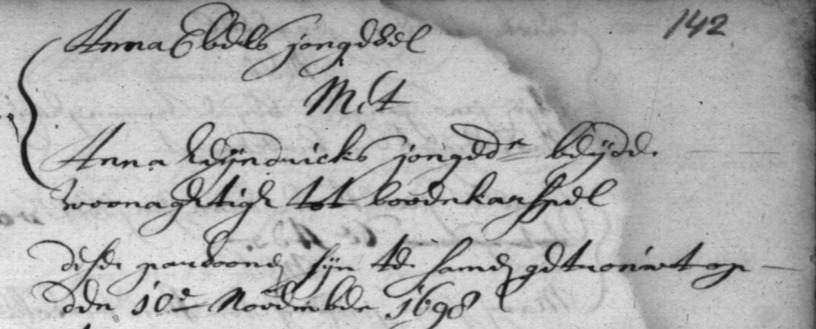 142
Anna Ebels jonggesel
Met
Anna Reijndricks jongedr beijde
woonachtigh tot bovenkarspel
dese parsoonen sijn te samen getrouwt op
den 10e November 1698